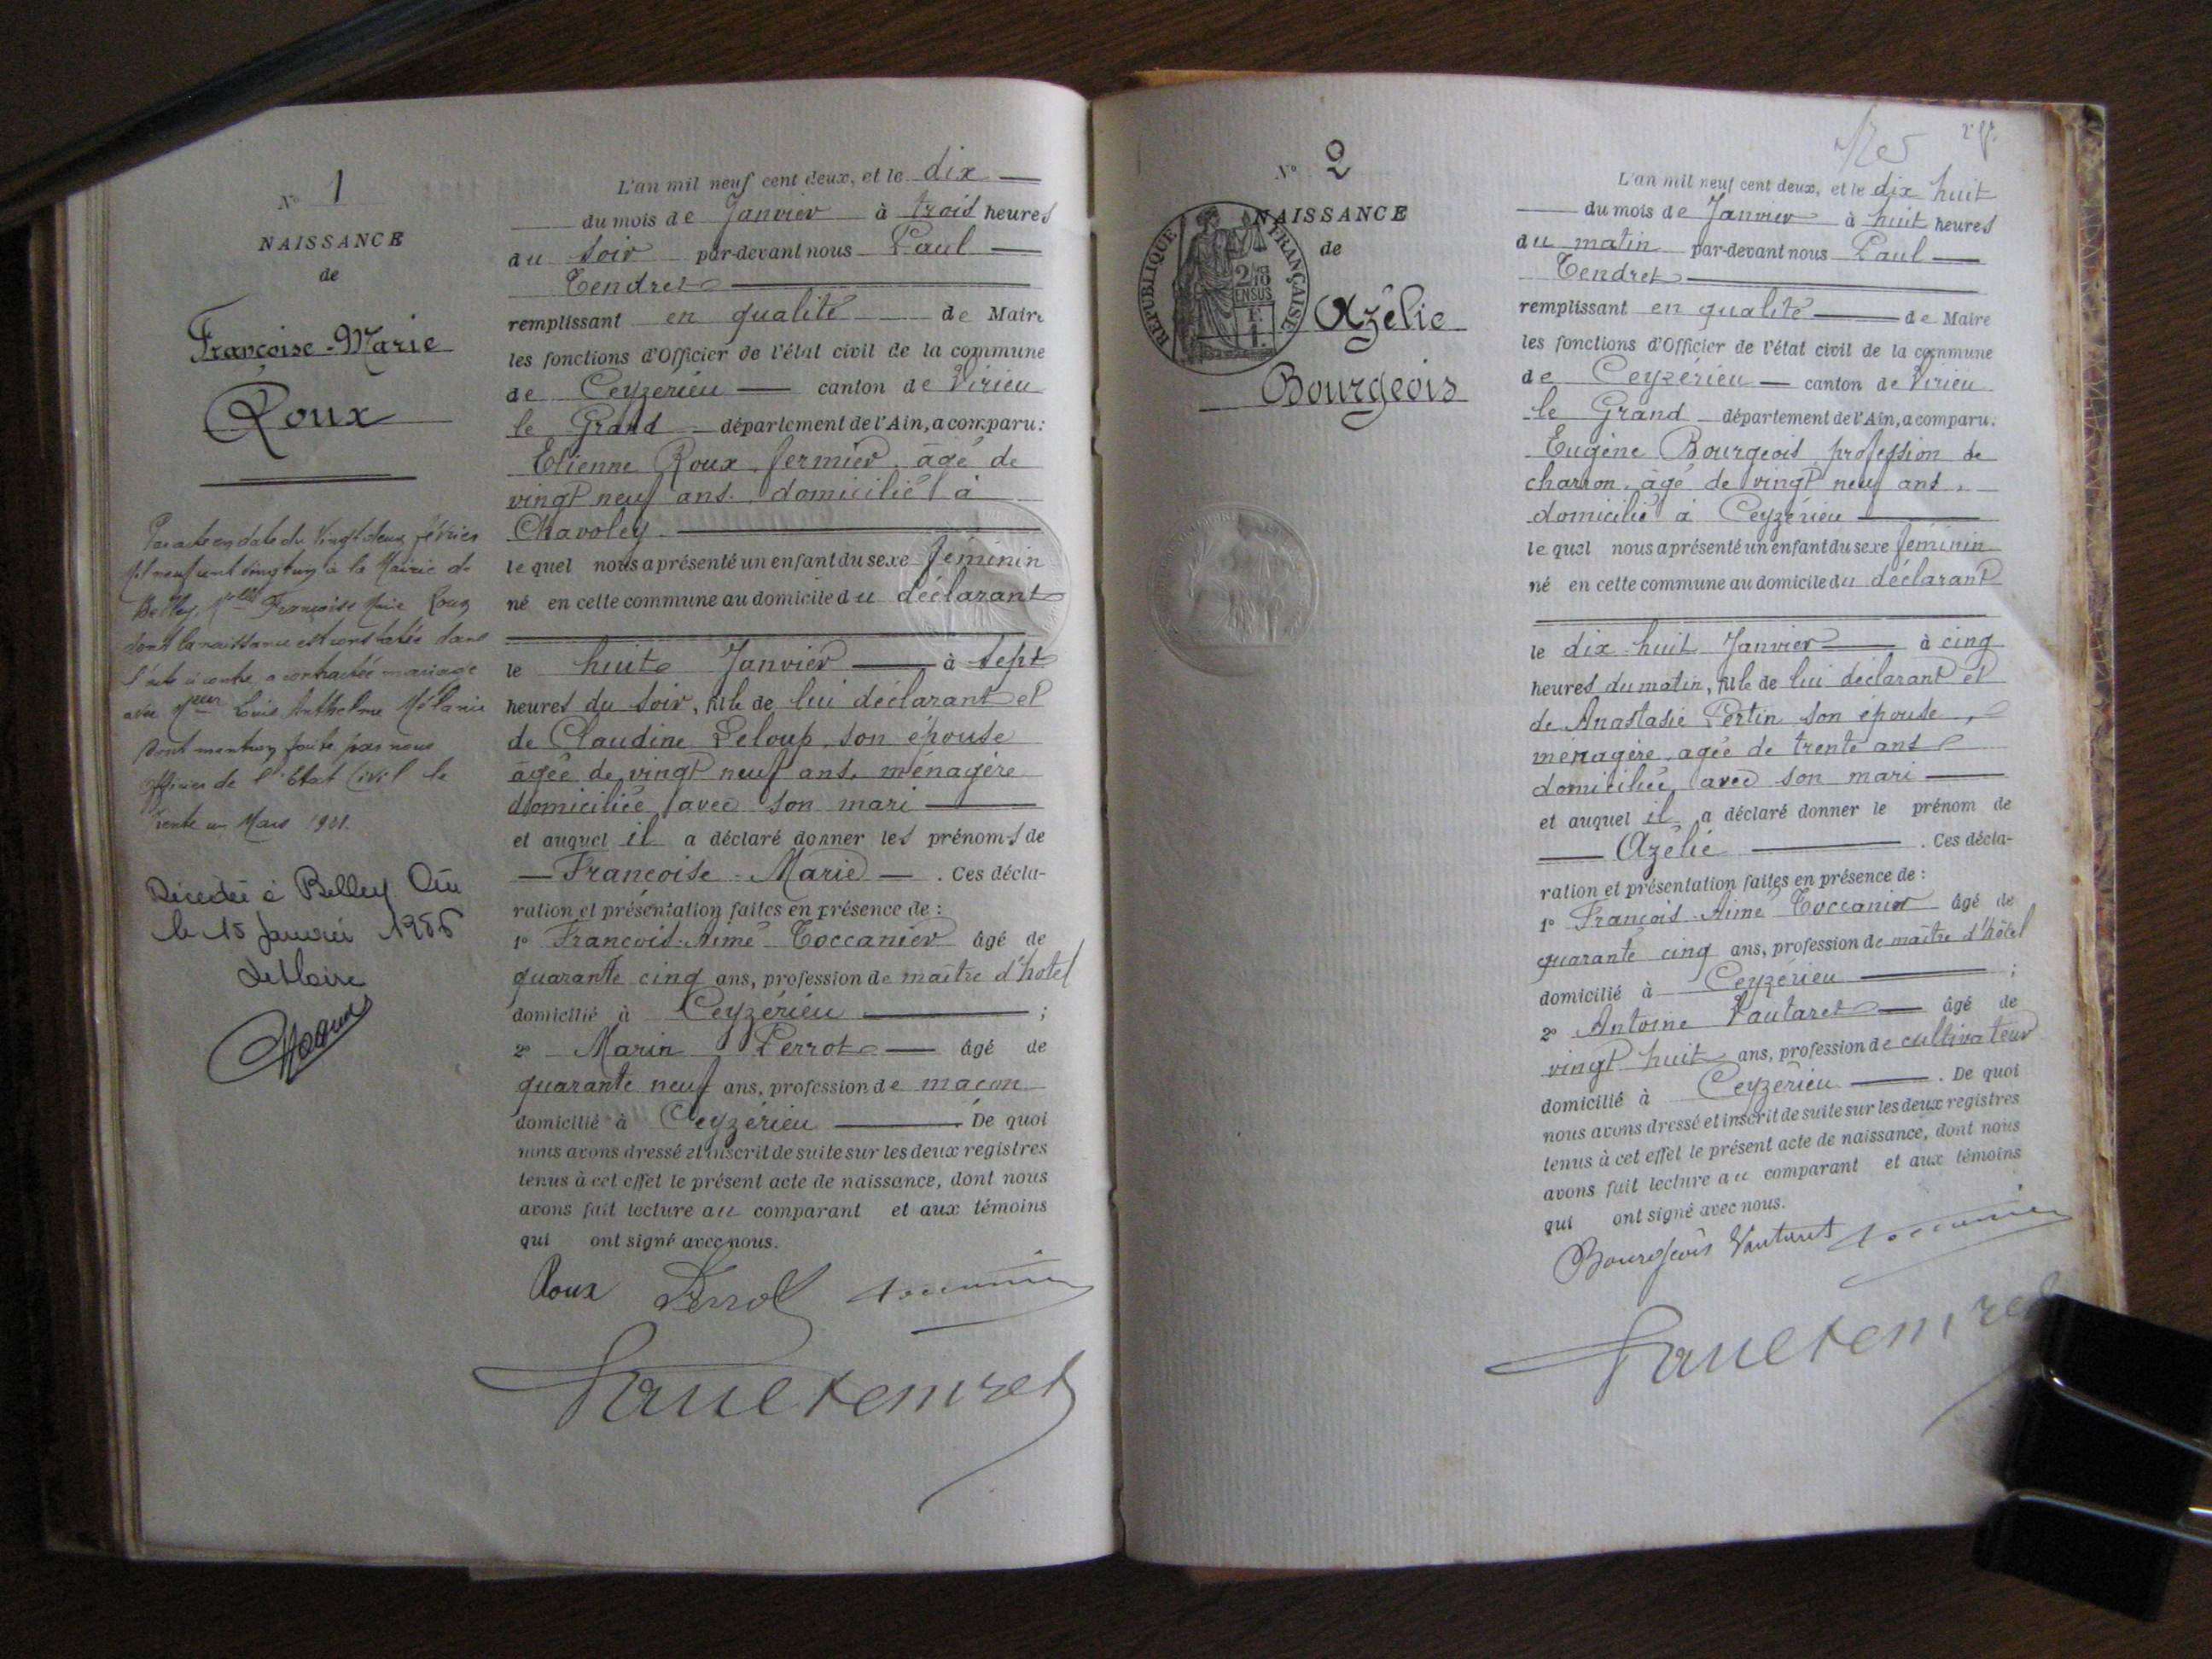 N° 1
NAISSANCE
de
Françoise-Marie
Roux
Par acte en date du vingt deux février
mil neuf cent vingt un à la Mairie de
Belley, Melle Françoise Marie Roux
dont la naissance est constatée dans
l'acte ci contre a contracté mariage
avec Louis Anthelme Mélanie
Dont mention faite par nous
officier de l'Etat Civil le
trente un Mars 1921.
Décédée à Belley Ain
le 15 Janvier
Le Maire
L'an mil neuf cent deux, et le dix
du mois de Janvier à trois heures
du soir par-devant nous Paul
Tendret
remplissant en qualité de Maire
les fonctions d'Officier de l'état civil de la commune
de Ceyzérieu canton de Virieu
le Grand département de l'Ain, a comparu:
Etienne Roux, fermier, âgé de
vingt neuf ans, domicilié à
Chavoley
le quel nous a présenté un enfant du sexe féminin
né en cette commune au domicile du déclarant
le huit Janvier à sept
heures du soir, fille de lui déclarant et
de Claudine Leloup, son épouse
âgée de vingt neuf ans, ménagère
domiciliée avec son mari
et auquel il a déclaré donner les prénoms de
Francoise-Marie. Ces décla-
ration et présentation faites en présence de :
1° Francois-Aimé Toccanier âgé de
quarante cinq ans, profession de maître d'hôtel
domicilié à Ceyzérieu ;
2° Marin Perrot âgé de
quarante neuf ans, profession de maçon
domicilié à Ceyzérieu. De quoi
nous avons dressé et inscrit de suite sur les deux registres
tenus à cet effet le présent acte de naissance, dont nous
avons fait lecture au comparant et aux témoins
qui ont signé avec nous.
Roux Perrot Toccanier
Paul Tendret
N° 2
NAISSANCE
de
Azélie
Bourgeois
RÉPUBLIQUE FRANÇAISE
L'an mil neuf cent deux, et le dix huit
du mois de Janvier à huit heures
du matin par-devant nous Paul
Tendret
remplissant en qualité de Maire
les fonctions d'Officier de l'état civil de la commune
de Ceyzérieu canton de Virieu
le Grand département de l'Ain, a comparu.
Eugène Bourgeois, profession de
charron, âgé de vingt neuf ans,
domicilié à Ceyzérieu
le quel nous a présenté un enfant du sexe féminin
né en cette commune au domicile du déclarant
le dix-huit Janvier à cinq
heures du matin, fille de lui déclarant et
de Anastasie Pertin son épouse,
menagère, agée de trente ans
domiciliée, avec son mari
et auquel il a déclaré donner le prénom de
Azélie. Ces décla-
ration et présentation faites en présence de :
1° François-Aimé Toccanier âgé de
quarante cinq ans, profession de maître d'hôtel
domicilié à Ceyzérieu ;
2° Antoine Vautaret âgé de
vingt huit ans, profession de cultivateur
domicilié à Ceyzérieu. De quoi
nous avons dressé et inscrit de suite sur les deux registres
tenus à cet effet le présent acte de naissance, dont nous
avons fait lecture au comparant et aux témoins
qui ont signé avec nous.
Bourgeois Vautaret Toccanier
Paul Tendret